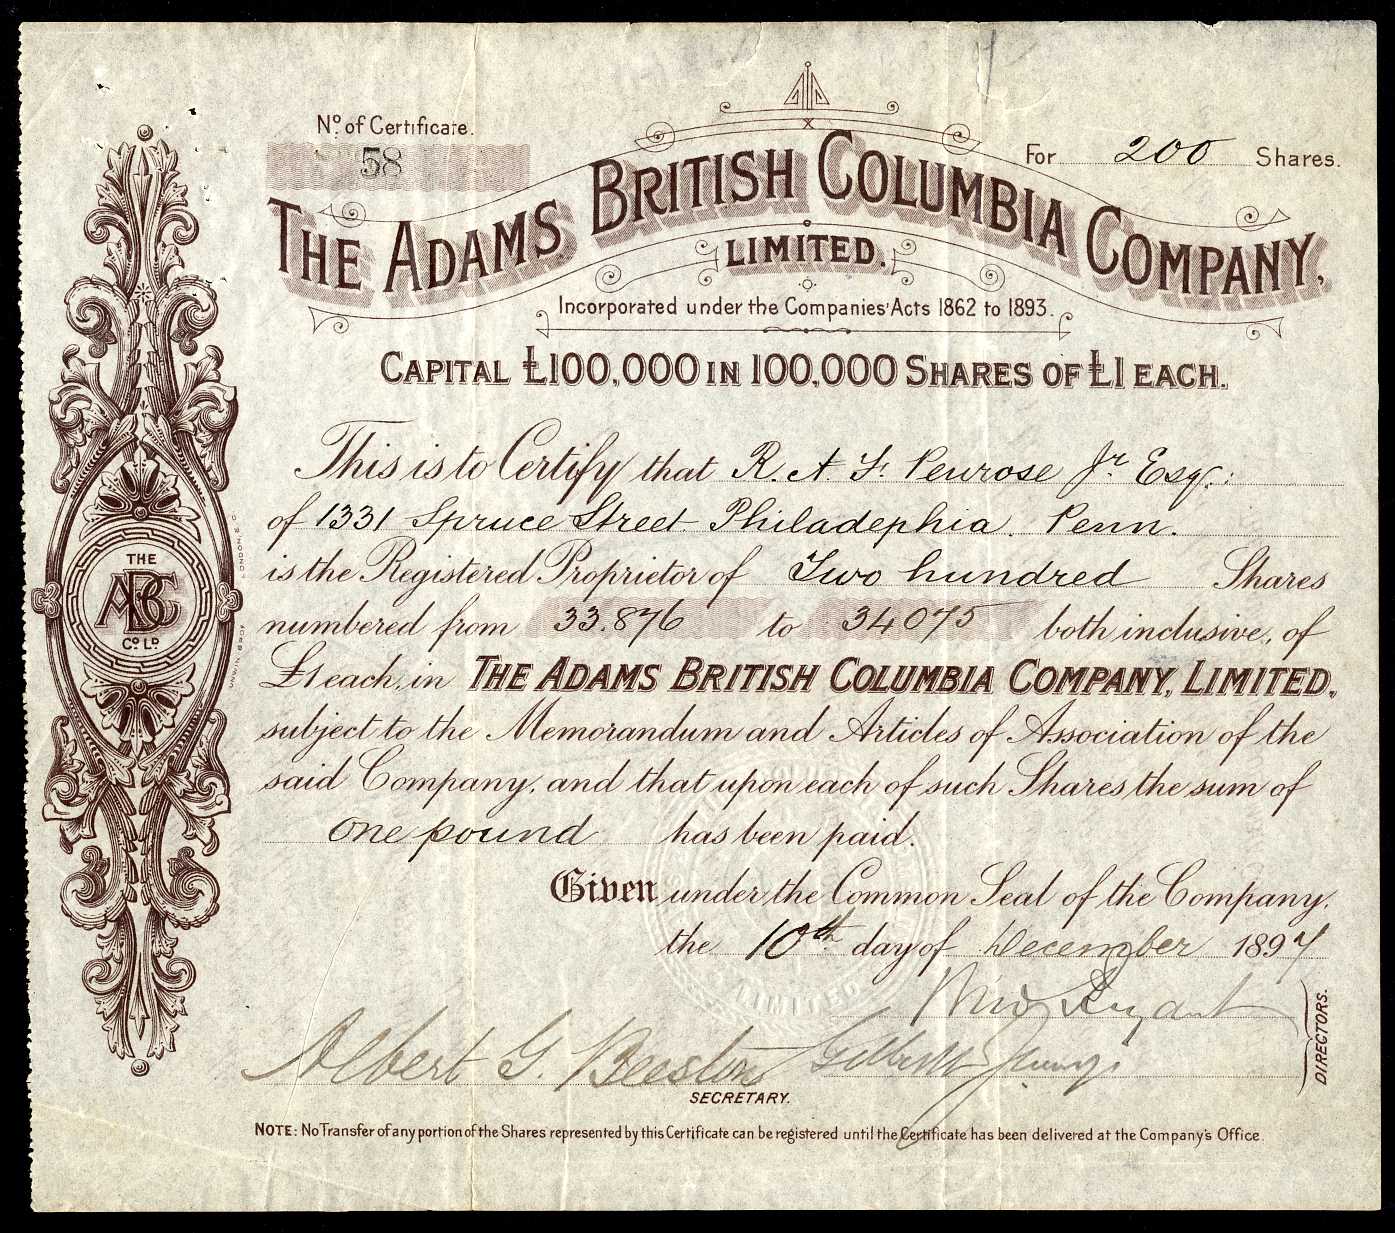 No. of Certificate.
58
For 200 Shares.
THE ADAMS BRITISH COLUMBIA COMPANY,
LIMITED.
Incorporated under the Companies' Acts 1862 to 1893.
CAPITAL £100,000 IN 100,000 SHARES OF £1 EACH.
This is to Certify that R. A. F. Penrose Jr. Esq:
of 1331 Spruce Street Philadephia. Penn.
is the Registered Proprietor of Two hundred Shares
numbered from 33.876 to 34075 both inclusive, of
£1 each, in THE ADAMS BRITISH COLUMBIA COMPANY, LIMITED,
subject to the Memorandum and Articles of Association of the
said Company, and that upon each of such Shares the sum of
One pound has been paid.
Given under the Common Seal of the Company,
the 10th day of December 1897
DIRECTORS.
Albert G. Beeston
SECRETARY.
NOTE: No Transfer of any portion of the Shares represented by this Certificate can be registered until the Certificate has been delivered at the Company's Office.
THE
ABC
Co. LD.
LIMITED